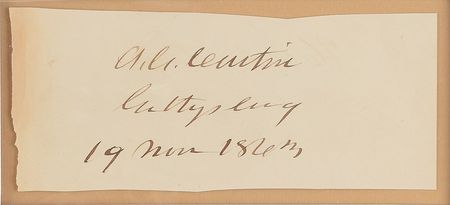 A.G. Curtin
Gettysburg
19 Nov 1863